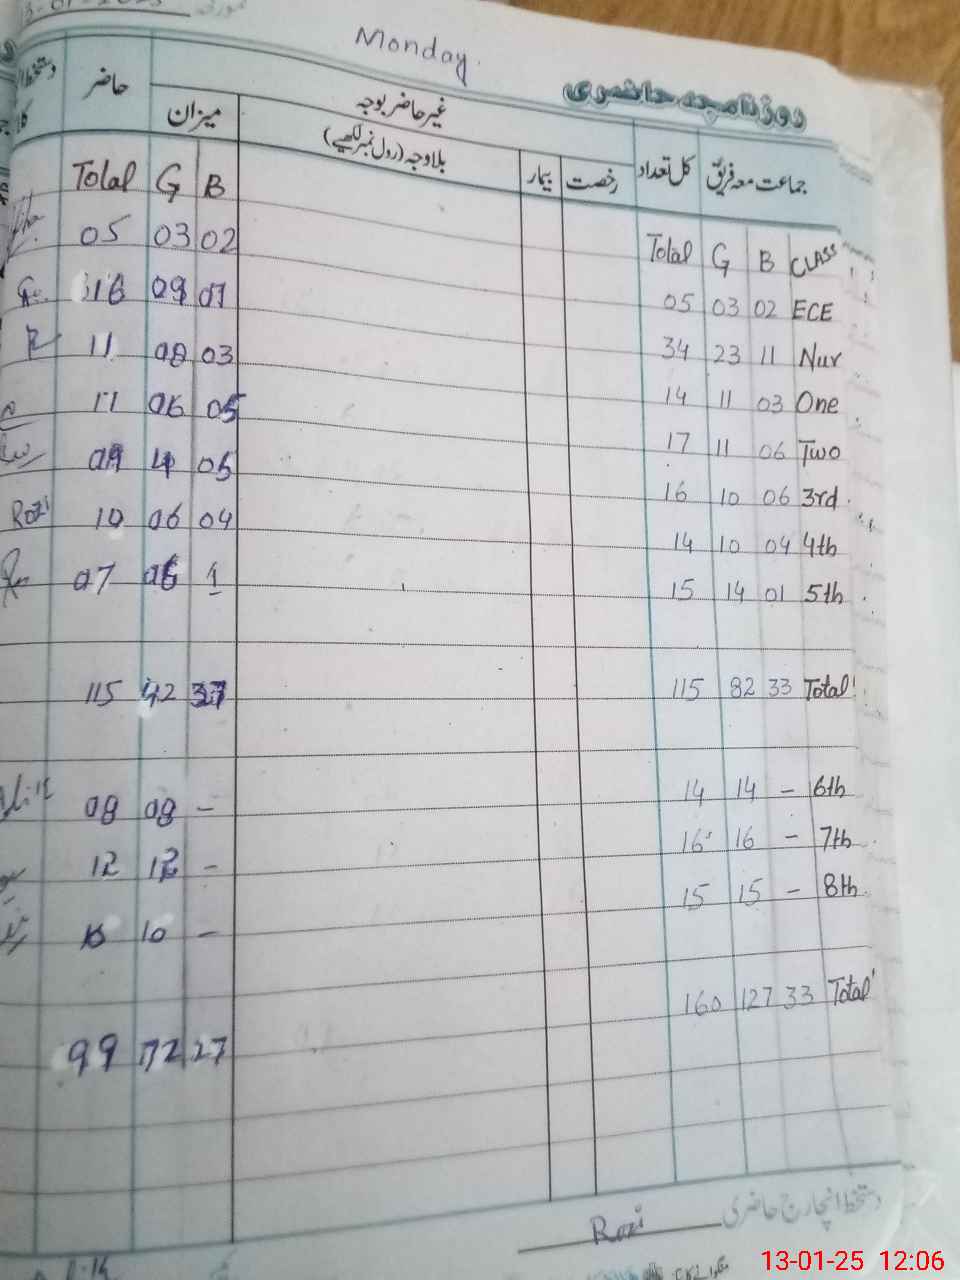 Monday
روزنامچہ حاضری
حاضر
غیر حاضر بوجہ
میزان
بلاوجہ (رول نمبر لکھیے)
بیمار
رخصت
کل تعداد
جماعت معہ فریق
Total G B Total G B CLASS
05 03 02 05 03 02 ECE
16 09 07 34 23 11 Nur
11 08 03 14 11 03 One
11 06 05 17 11 06 Two
09 4 05 16 10 06 3rd
Rozi 10 06 04 14 10 04 4th
07 06 1 15 14 01 5th
115 42 115 82 33 Total
08 08 - 14 14 - 6th
12 12 - 16 16 - 7th
10 - 15 15 - 8th
160 127 33 Total
99 72 27
دستخط انچارج حاضری Rozi
13-01-25 12:06